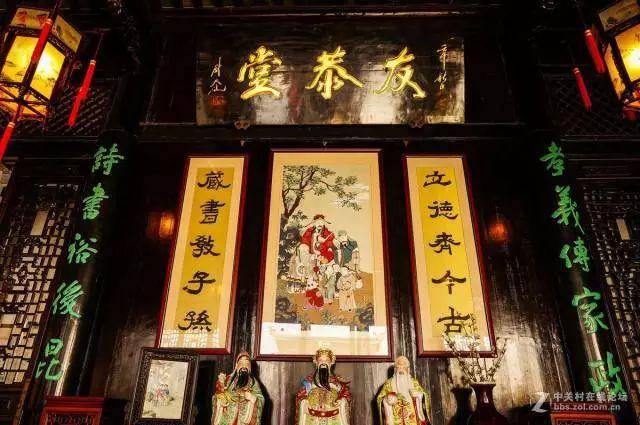 友恭堂
孝義傳家政
立德齊今古
藏書教子孫
詩書裕後昆
中关村在线论坛
bbs.zol.com.cn